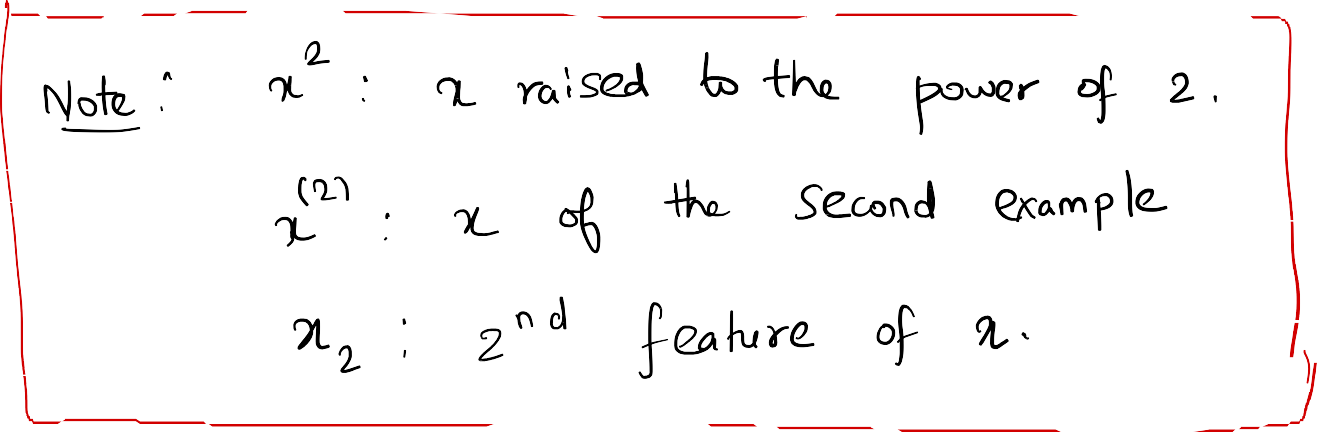 Note: x² : x raised to the power of 2.
x⁽²⁾ : x of the second example
x₂ : 2ⁿᵈ feature of x.